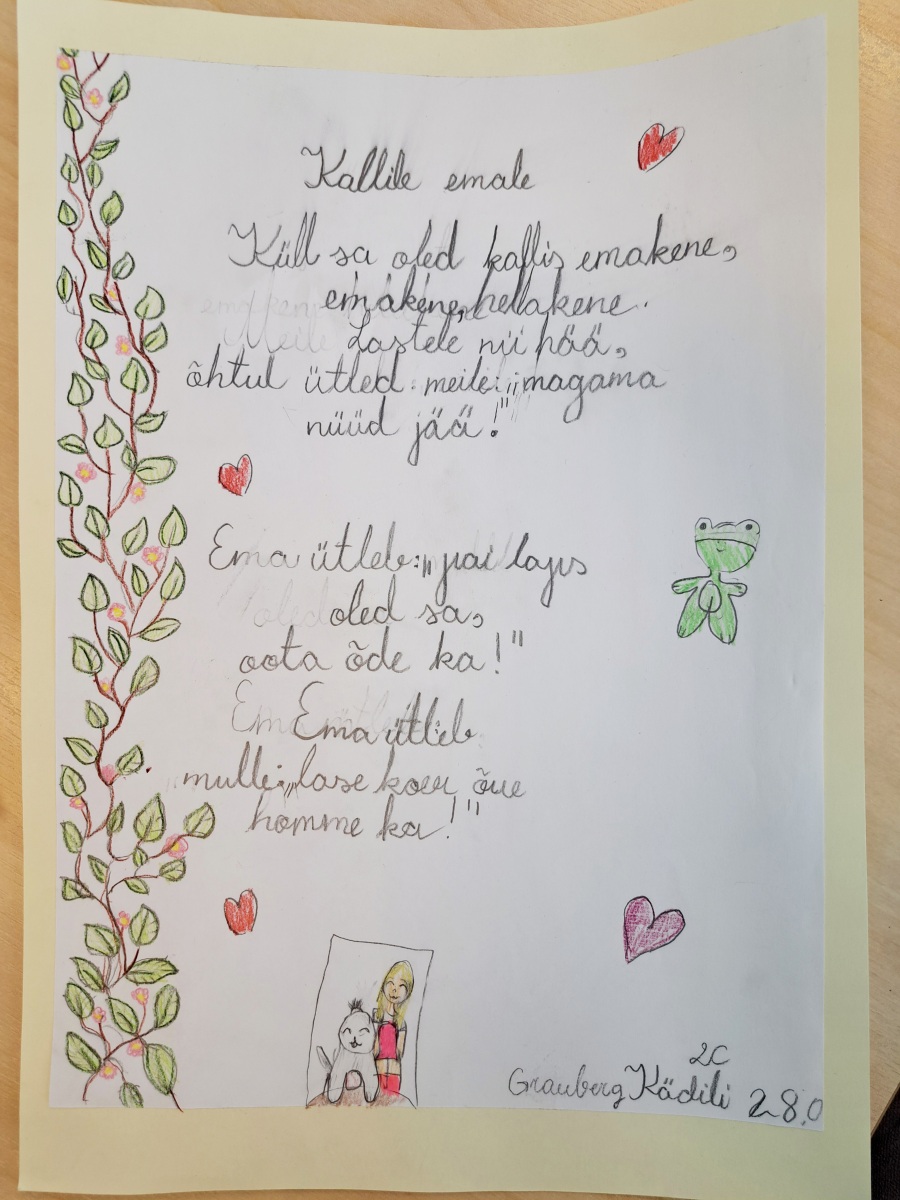 Kallile emale
Küll sa oled kallis emakene,
emakene, hellakene.
Lastele nii hää,
õhtul ütled meile: „magama
nüüd jää!"
Ema ütleb: „pai laps
oled sa,
oota õde ka!"
Ema ütleb
mulle: „lase koer õue
homme ka!"
2C
Grauberg Kädili 28.0